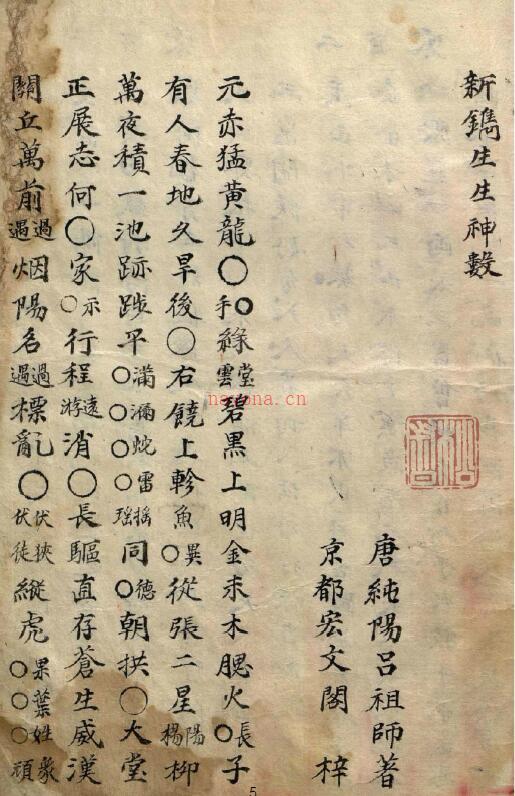 新鐫生生神數
唐純陽呂祖師著
京都宏文閣 梓
元赤猛黃龍〇〇手綠堂雲碧黑上明金未木腮火長〇子
有人春地久旱後〇右饒上軫魚異〇從張二星陽楊柳
萬夜積一池跡踄平滿瀰蛇雷搖〇〇〇〇瑶同德〇朝拱〇大堂
正展志何〇家示〇行程遠游消〇長驅直存蒼生威漢
關丘萬前過遇烟陽名過遇標亂〇伏狹伏徒縱虎果葉姓象〇〇〇頑
nayona.cn
5